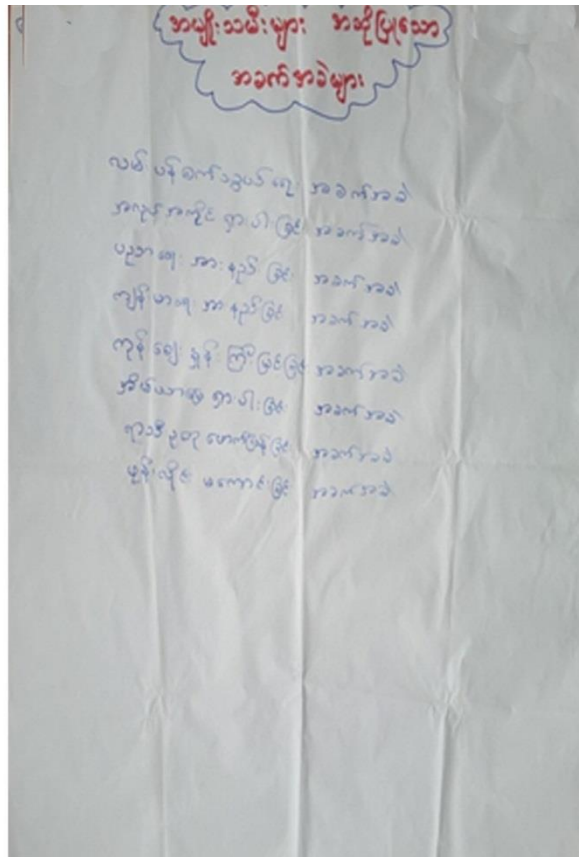 အမျိုးသမီးများ အဆိုပြုသော
အခက်အခဲများ
လမ်း ပန်း ဆက် သွယ် ရေး အခက်အခဲ
အကူအညီ ရှားပါးခြင်း အခက်အခဲ
ပညာရေး အားနည်းခြင်း အခက်အခဲ
ကျန်းမာရေး အားနည်းခြင်း အခက်အခဲ
ကုန်ဈေးနှုန်း ကြီးမြင့်ခြင်း အခက်အခဲ
အိမ်ယာမြေ ရှားပါးခြင်း အခက်အခဲ
ရာသီဥတု ဖောက်ပြန်ခြင်း အခက်အခဲ
ဖုန်းလိုင်း မကောင်းခြင်း အခက်အခဲ